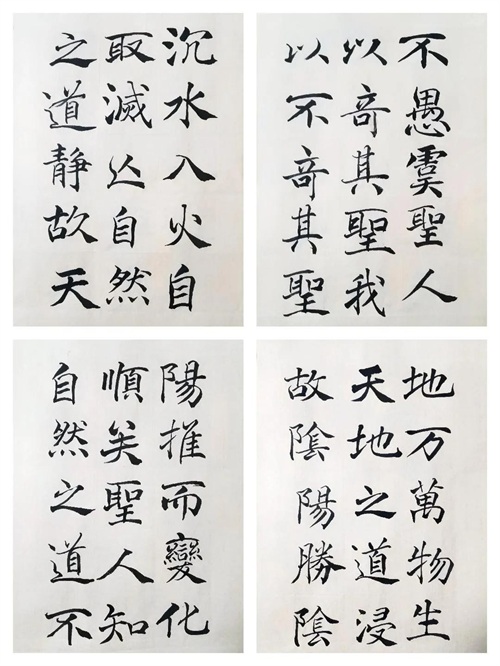 不愚虞聖人
以奇其聖我
以不奇其聖
沉水入火自
取滅亾自然
之道靜故天
地万萬物生
天地之道浸
故陰陽勝陰
陽推而變化
順矣聖人知
自然之道不